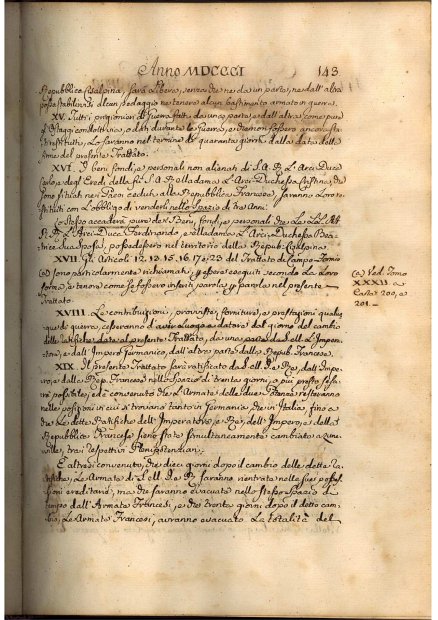 Anno MDCCCI 143
Repubblica Cisalpina, sarà libera, senza che ne da un parte, ne dall' altra
possa stabilirsi alcun pedaggio ne tenere alcun bastimento armato in guerra.
XV. Tutti i prigionieri di Guerra fatti da una parte, e dall' altra come pure
gl' Ostaggi dati durante la Guerra, e che non fossero ancora
restituiti, Lo saranno nel termine di quaranta giorni dalla data della
firma del presente Trattato.
XVI. I beni fondi, e personali non alienati di S. A. R. L' Arci-Duca
Carlo, e degl' Eredi della fù S. A. R. Madama L' Arci-Duchessa Cristina, che
sono situati nei Paesi ceduti alla Repubblica Francese, saranno Loro re-
stituiti con L' obbligo di venderli nello Spazio di tre Anni.
Lo Stesso accaderà pure de' Beni, fondi, e personali che Le LL. AA.
R. R. L' Arci-Duca Ferdinando, e Madama L' Arci-Duchessa Bea-
trice sua Sposa, possedessero nel territorio della Repub. Cisalpina.
XVII. Gli Articoli 12, 13, 15, 16, 17, e 23 del Trattato di Campo-Formio
(a) sono particolarmente richiamati, per essere eseguiti secondo La Loro
forma, e tenore come se fossero inseriti parola per parola nel presente
Trattato.
(a) Ved. Tomo
XXXII a
Carta 200, a
201. —
XVIII. Le contribuzioni, provviste, forniture, e prestazioni qualun-
que di guerra, cesseranno d' aver Luogo a datare dal giorno del cambio
delle ratifiche date al presente Trattato, da una parte da S. M. L' Impera-
tore, e dall' Impero Germanico, dall' altra parte dalla Repub. Francese.
XIX. Il presente Trattato sarà ratificato da S. M. il Re, dall' Impe-
ro, e dalla Rep. Francese nello Spazio di trenta giorni, o più presto se sa-
rà possibile, ed è convenuto che L' Armate delle due Potenze resteranno
nelle posizioni in cui si trovano tanto in Germania che in Italia, fino a
che Le dette Ratifiche dell' Imperatore, e Re, dell' Impero, e della
Repubblica Francese siano state simultaneamente cambiate a
ville, trai respettivi Plenipotenziari.
E' altresì convenuto, che dieci giorni dopo il cambio delle dette ra-
tifiche, Le Armate di S. M. I. e R. saranno rientrate nelle sue posses-
sioni ereditarie, ma che saranno evacuate nello stesso spazio di
tempo dall' Armata Francesi, e che trenta giorni dopo il detto cam-
bio, Le Armate Francesi, avranno evacuato La totalità del